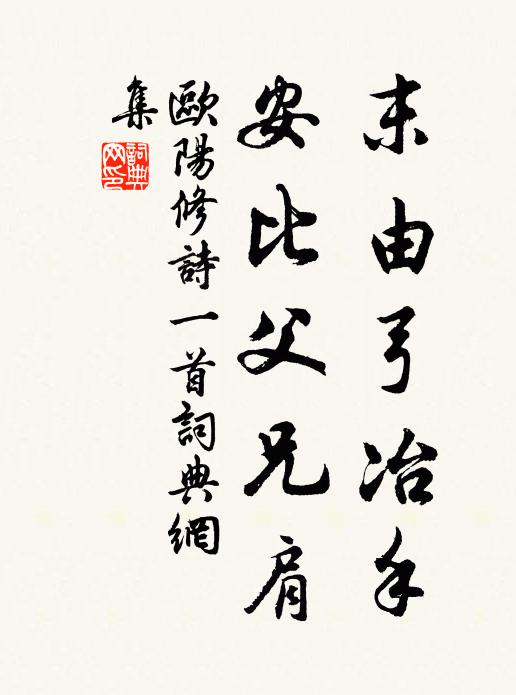 末由弓冶手
安比父兄肩
歐陽修詩一首詞典網
集
詞典
网印